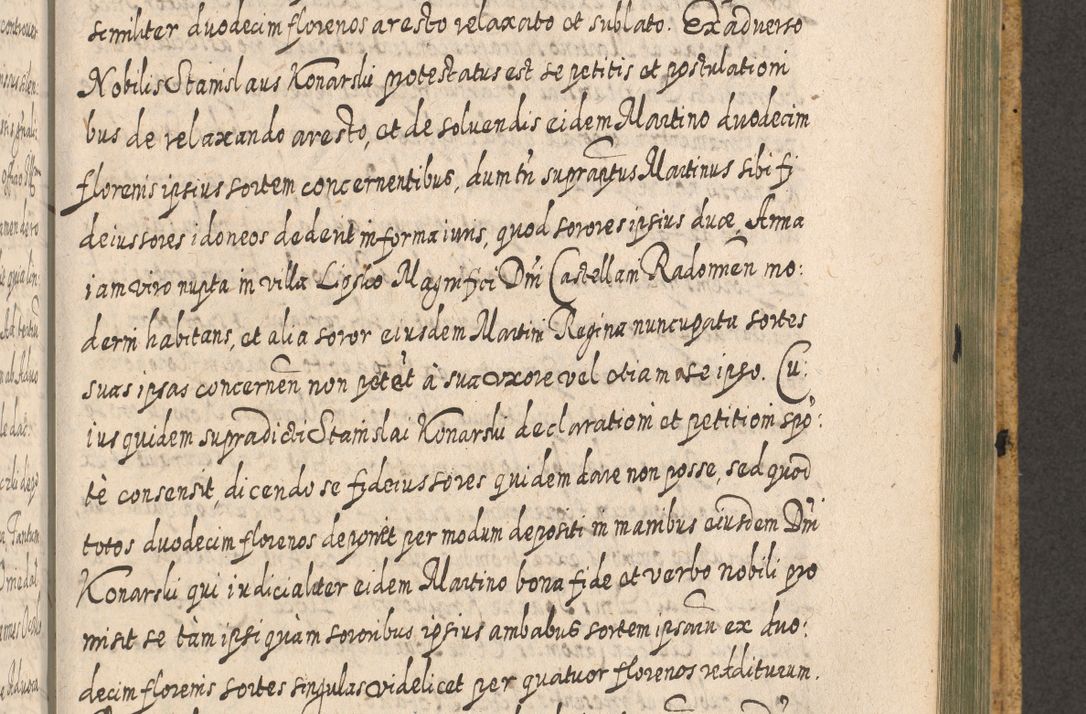 similiter duodecim florenos aresto relaxato et sublato. Ex adverso
Nobilis Stanislaus Konarski protestatus est se petitis et postulationi
bus de relaxando aresto, et de solvendis eidem Martino duodecim
florenis ipsius sortem concernentibus, dum tñ supraptus Martinus sibi fi
deiussores idoneos dederit in forma iuris, quod sorores ipsius duæ, Anna
iam viro nupta in villa Lipsko Magnifici Dñi Castellani Radomien mo:
derni habitans, et alia soror eiusdem Martini Regina nuncupata sortes
suas ipsas concernen non petet à sua uxore vel etiam a se ipso. Cu:
ius quidem supradicti Stanislai Konarski declarationi et petitioni spo:
te consensit, dicendo se fideiussores quidem dare non posse, sed quod
totos duodecim florenos deponet per modum depositi in manibus eiusdem Dñi
Konarski qui iudicialiter eidem Martino bona fide et verbo nobili pro
misit se tàm ipsi quàm sororibus ipsius ambabus sortem ipsam ex duo:
decim florenis sortes singulas videlicet per quatuor florenos redditurum.